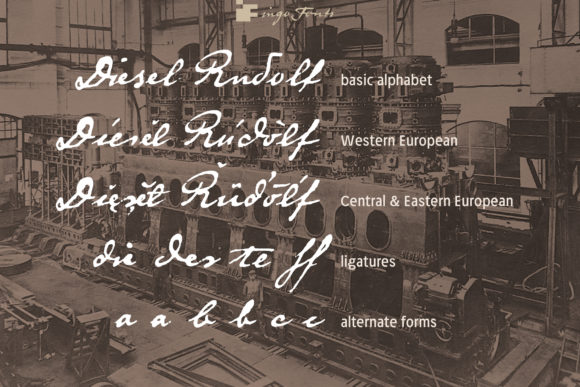 ingoFonts
Diesel Rudolf basic alphabet
Western European
Central & Eastern European
die der te ff ligatures
a a b b c c alternate forms